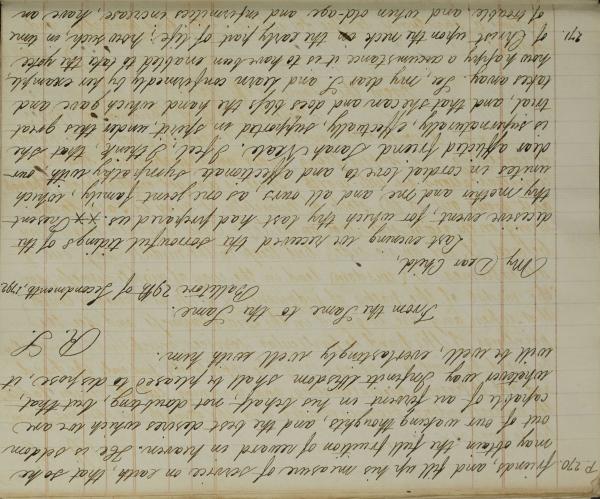 P. 270 friends, and fill up his measure of service on earth, that so he
may obtain the full fruition of reward in heaven. He is seldom
out of our waking thoughts, and the best desires which we are
capable of are fervent in his behalf, not doubting, but that,
whatever way Infinite Wisdom shall be pleased to dispose, it
will be well, everlastingly well with him.
R. S.
From the Same to the Same.
Ballitore 29th of Secondmonth, 1792
My Dear Child,
Last evening we received the sorrowful tidings of the
decisive event, for which thy last had prepared us. ** Present
thy mother and me, and all ours as one joint family, which
unites in cordial love and affectionate sympathy with our
dear afflicted friend Sarah Neale. I feel, I think, that she
is supernaturally, effectually, supported in spirit, under this great
trial, and that she can and does bless the hand which gave and
takes away. See, my dear S. and learn confirmedly by her example,
how happy a circumstance it is to have been enabled to take the yoke
271. of Christ upon the neck in the early part of life; how such, in time
of trouble, and when old-age and infirmities increase, have an